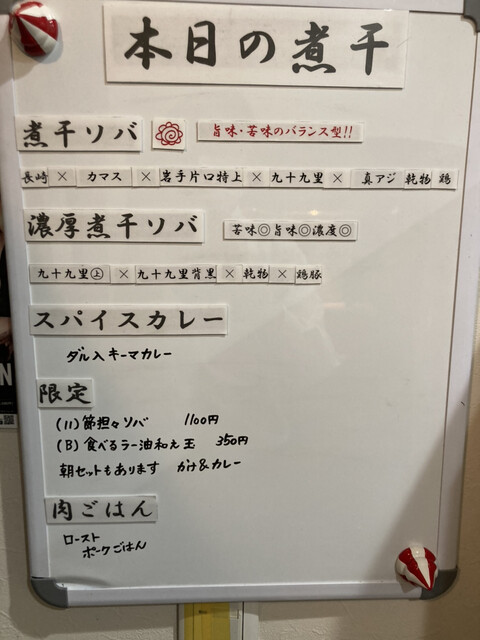 本日の煮干
煮干ソバ 旨味・苦味のバランス型!!
長崎 × カマス × 岩手片口特上 × 九十九里 × 真アジ 乾物 鶏
濃厚煮干ソバ 苦味◎旨味◎濃度◎
九十九里㊤ × 九十九里背黒 × 乾物 × 鶏豚
スパイスカレー
ダル入キーマカレー
限定
(11) 節担々ソバ 1100円
(B) 食べるラー油和え玉 350円
朝セットもあります かけ&カレー
肉ごはん
ロースト
ポークごはん